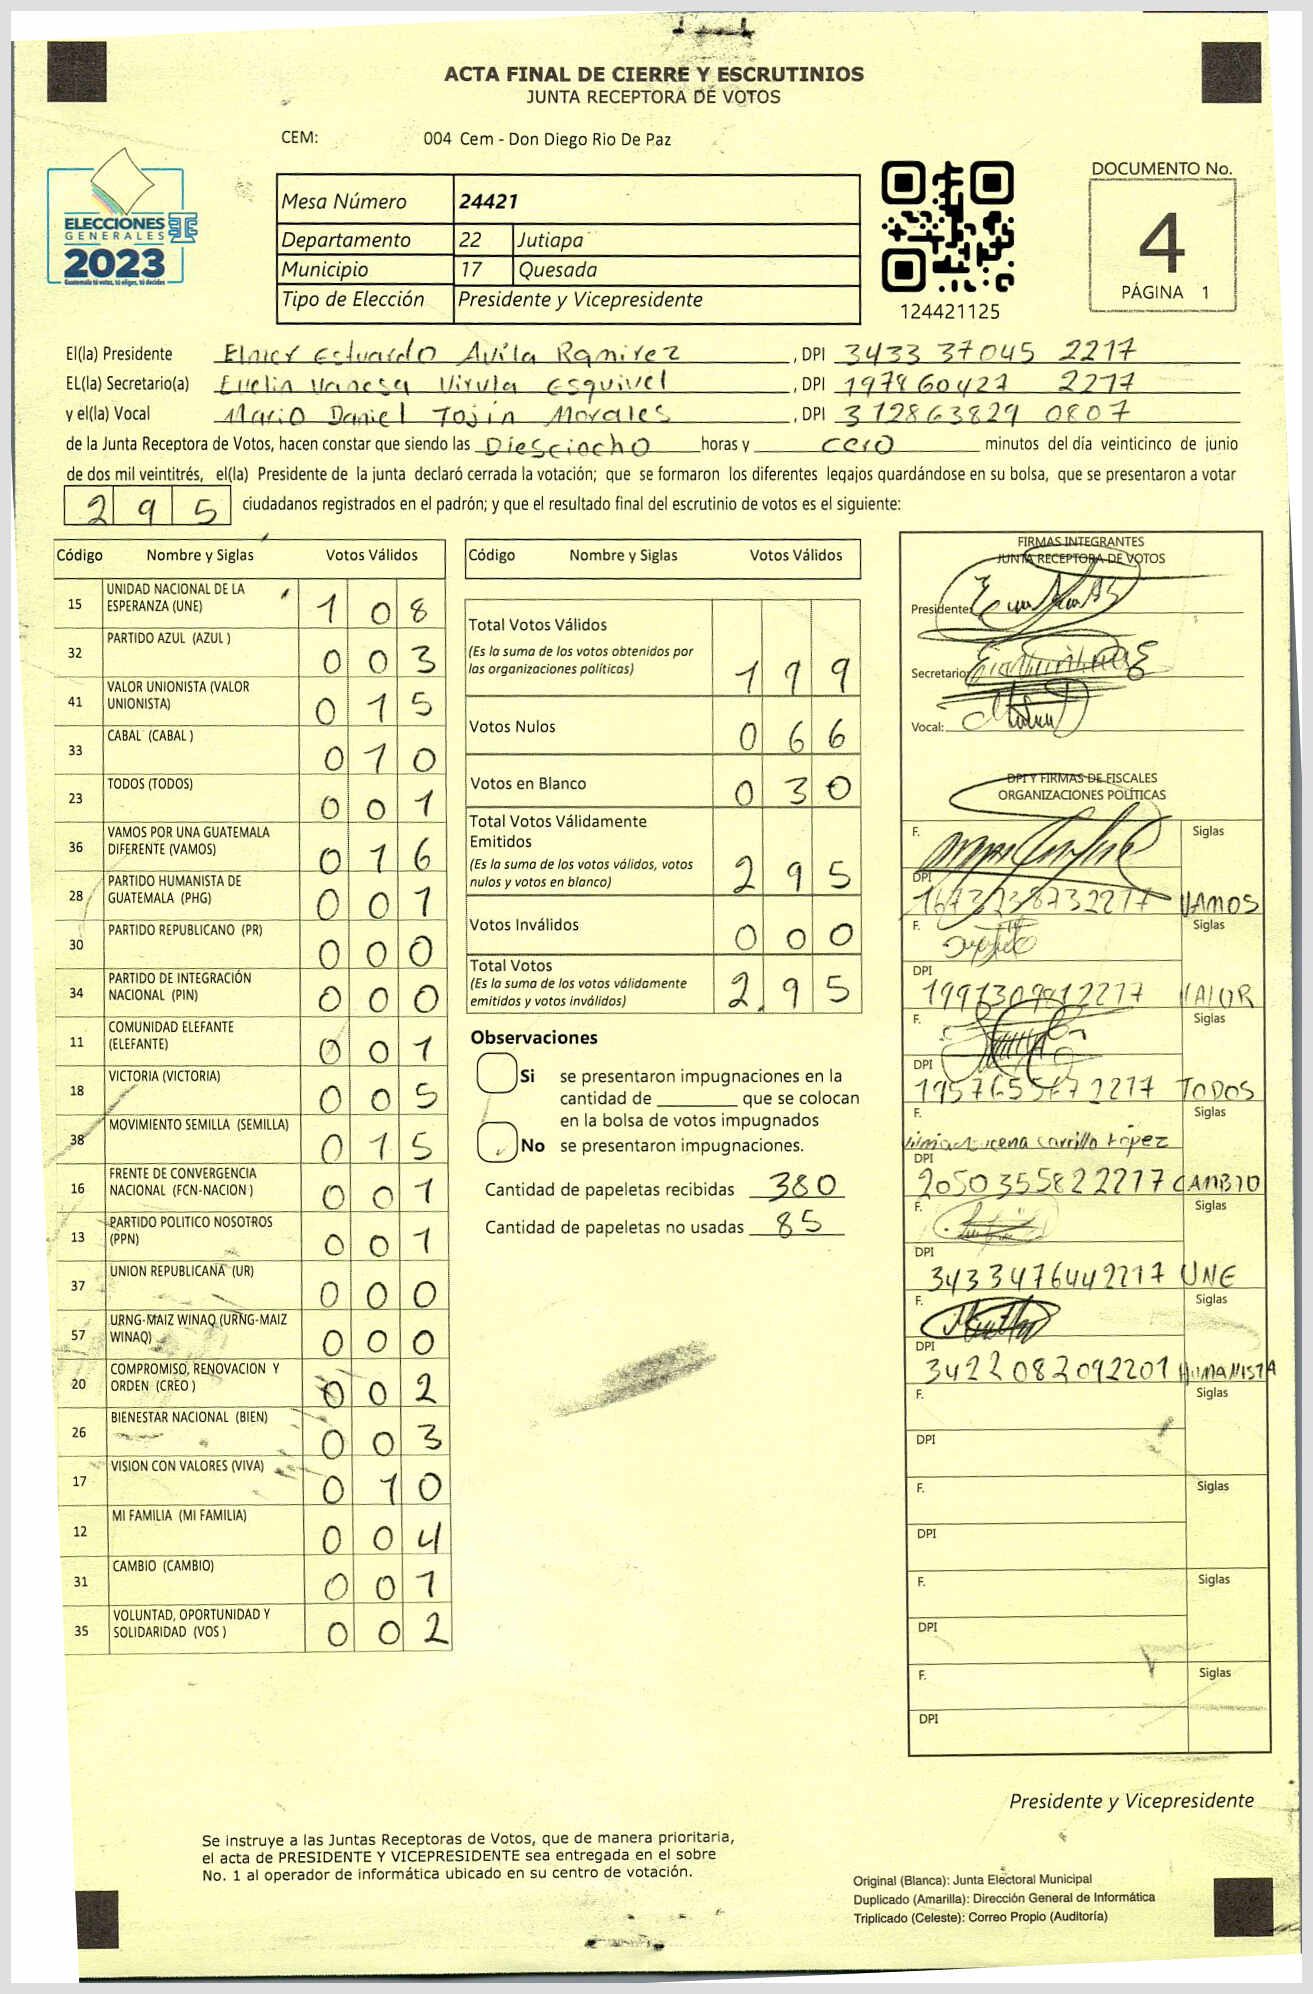 ACTA FINAL DE CIERRE Y ESCRUTINIOS
JUNTA RECEPTORA DE VOTOS
CEM: 004 Cem - Don Diego Rio De Paz
ELECCIONES
GENERALES
2023
Guatemala tú votas, tú eliges, tú decides
Mesa Número 24421
Departamento 22 Jutiapa
Municipio 17 Quesada
Tipo de Elección Presidente y Vicepresidente
124421125
DOCUMENTO No.
4
PÁGINA 1
El(la) Presidente Elmer Estuardo Avila Ramirez , DPI 3433 37045 2217
EL(la) Secretario(a) Evelin Vanesa Virula Esquivel , DPI 1978 60427 2217
y el(la) Vocal Mario Daniel Tojin Morales , DPI 3128 63829 0807
de la Junta Receptora de Votos, hacen constar que siendo las Diesciocho horas y cero minutos del día veinticinco de junio
de dos mil veintitrés, el(la) Presidente de la junta declaró cerrada la votación; que se formaron los diferentes legajos guardándose en su bolsa, que se presentaron a votar
295 ciudadanos registrados en el padrón; y que el resultado final del escrutinio de votos es el siguiente:
Código Nombre y Siglas Votos Válidos
15 UNIDAD NACIONAL DE LA ESPERANZA (UNE) 108
32 PARTIDO AZUL (AZUL ) 003
41 VALOR UNIONISTA (VALOR UNIONISTA) 015
33 CABAL (CABAL ) 010
23 TODOS (TODOS) 001
36 VAMOS POR UNA GUATEMALA DIFERENTE (VAMOS) 016
28 PARTIDO HUMANISTA DE GUATEMALA (PHG) 001
30 PARTIDO REPUBLICANO (PR) 000
34 PARTIDO DE INTEGRACIÓN NACIONAL (PIN) 000
11 COMUNIDAD ELEFANTE (ELEFANTE) 001
18 VICTORIA (VICTORIA) 005
38 MOVIMIENTO SEMILLA (SEMILLA) 015
16 FRENTE DE CONVERGENCIA NACIONAL (FCN-NACION ) 001
13 PARTIDO POLITICO NOSOTROS (PPN) 001
37 UNION REPUBLICANA (UR) 000
57 URNG-MAIZ WINAQ (URNG-MAIZ WINAQ) 000
20 COMPROMISO, RENOVACION Y ORDEN (CREO ) 002
26 BIENESTAR NACIONAL (BIEN) 003
17 VISION CON VALORES (VIVA) 010
12 MI FAMILIA (MI FAMILIA) 004
31 CAMBIO (CAMBIO) 001
35 VOLUNTAD, OPORTUNIDAD Y SOLIDARIDAD (VOS ) 002
Código Nombre y Siglas Votos Válidos
Total Votos Válidos
(Es la suma de los votos obtenidos por
las organizaciones políticas) 199
Votos Nulos 066
Votos en Blanco 030
Total Votos Válidamente
Emitidos
(Es la suma de los votos válidos, votos
nulos y votos en blanco) 295
Votos Inválidos 000
Total Votos
(Es la suma de los votos válidamente
emitidos y votos inválidos) 295
Observaciones
Si se presentaron impugnaciones en la
cantidad de ________ que se colocan
en la bolsa de votos impugnados
No se presentaron impugnaciones.
Cantidad de papeletas recibidas 380
Cantidad de papeletas no usadas 85
FIRMAS INTEGRANTES
JUNTA RECEPTORA DE VOTOS
Presidente:
Secretario:
Vocal:
DPI Y FIRMAS DE FISCALES
ORGANIZACIONES POLÍTICAS
F. Siglas
DPI
VAMOS
F. Siglas
DPI
1991309812217 VALOR
F. Siglas
DPI
TODOS
F. Siglas
Lucena Carrillo López
DPI
2050355822217 CAMBIO
F. Siglas
DPI
3433476442217 UNE
F. Siglas
DPI
3422082092201 HUMANISTA
F. Siglas
DPI
F. Siglas
DPI
F. Siglas
DPI
F. Siglas
DPI
Presidente y Vicepresidente
Se instruye a las Juntas Receptoras de Votos, que de manera prioritaria,
el acta de PRESIDENTE Y VICEPRESIDENTE sea entregada en el sobre
No. 1 al operador de informática ubicado en su centro de votación.
Original (Blanca): Junta Electoral Municipal
Duplicado (Amarilla): Dirección General de Informática
Triplicado (Celeste): Correo Propio (Auditoría)